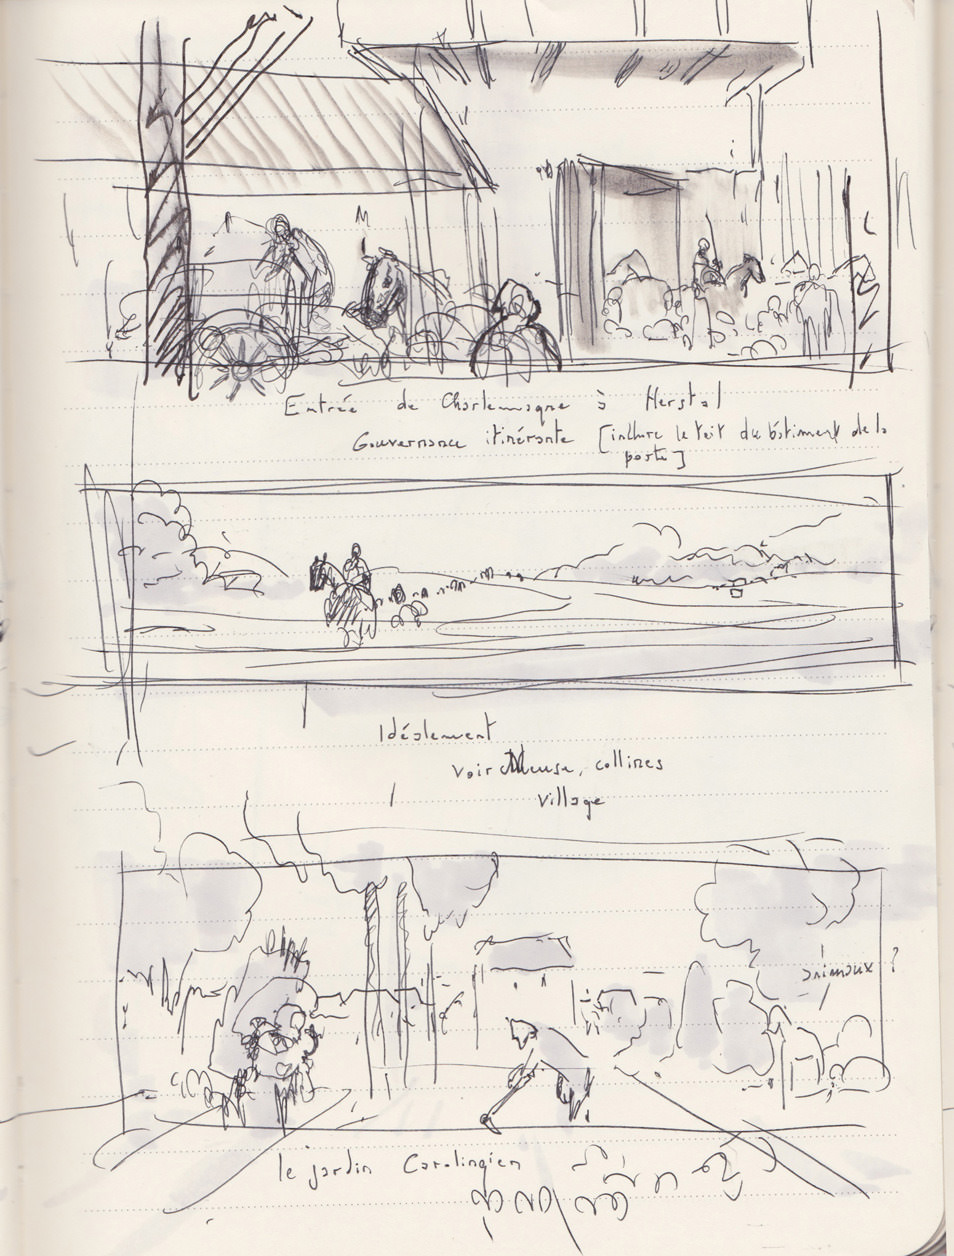 Entrée de Charlemagne à Herstal
Gouvernance itinérante [inclure le toit du bâtiment de la
poste]
Idéalement
voir Meuse, collines
village
animaux ?
le jardin Carolingien